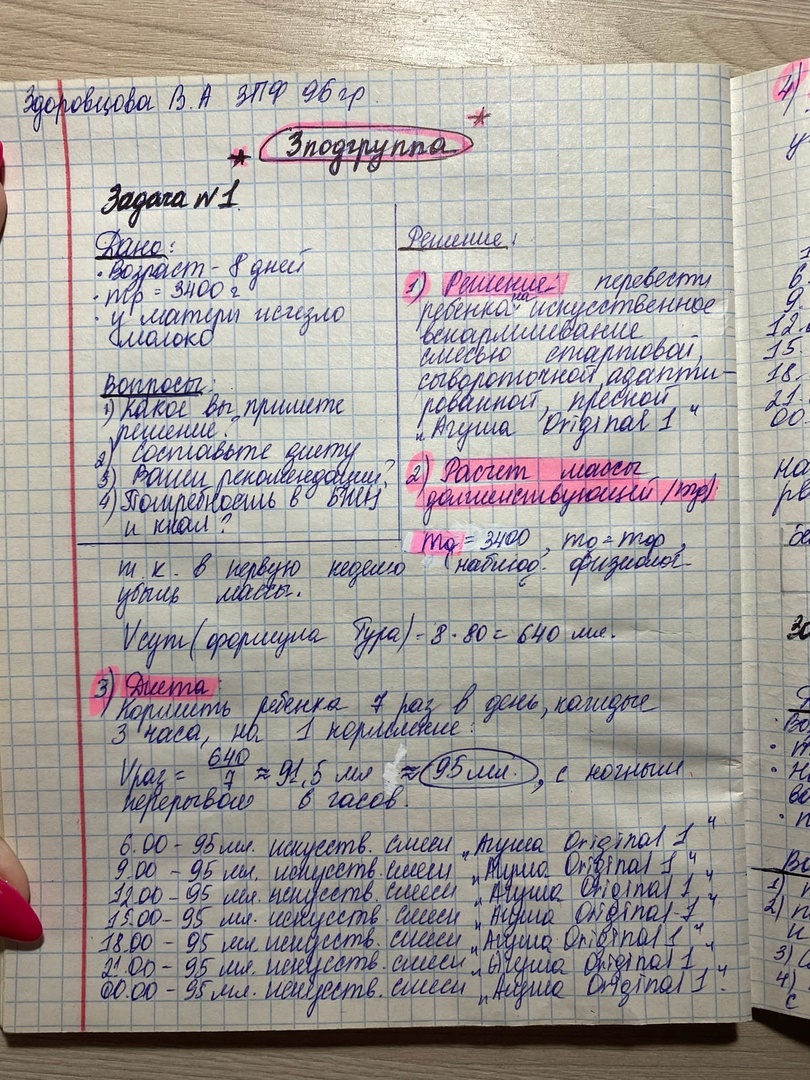 Здоровцова В.А 3ПФ 9б гр.
* 3 подгруппа *
Задача №1
Дано:
· Возраст - 8 дней
· mр = 3400 г
· у матери исчезло
молоко
Вопросы:
1) Какое вы примете
решение?
2) Составьте диету
3) Ваши рекомендации?
4) Потребность в БЖУ
и ккал?
Решение:
1) Решение: перевести
ребёнка на искусственное
вскармливание
смесью стартовой,
сывороточной, адапти-
рованной, пресной
„Агуша Original 1"
2) Расчёт массы
долженствующей /mд/:
mд = 3400, mд = mр,
т.к. в первую неделю наблюд. физиолог.
убыль массы.
Vсут (формула Тура) - 8 · 80 = 640 мл.
3) Диета:
Кормить ребёнка 7 раз в день, каждые
3 часа, на 1 кормление:
Vраз = 640/7 ≈ 91,5 мл ≈ 95 мл., с ночным
перерывом 6 часов.
6.00 - 95 мл. искусств. смеси „Агуша Original 1"
9.00 - 95 мл. искусств. смеси „Агуша Original 1"
12.00 - 95 мл. искусств. смеси „Агуша Original 1"
15.00 - 95 мл. искусств. смеси „Агуша Original 1"
18.00 - 95 мл. искусств. смеси „Агуша Original 1"
21.00 - 95 мл. искусств. смеси „Агуша Original 1"
00.00 - 95 мл. искусств. смеси „Агуша Original 1".
4)
у
6.
9.
12.
15.
18.
21.
00.
на
1)
2)
3)
4)
с